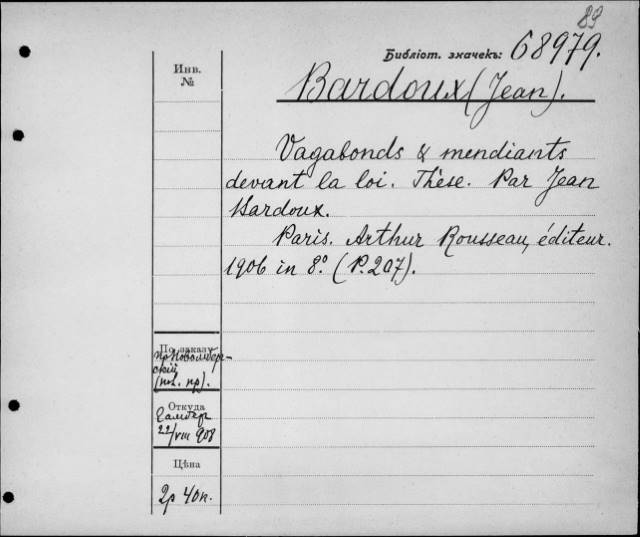 83
Библіот. значекъ: 68979.
Инв.
№
Bardoux (Jean).
Vagabonds & mendiants
devant la loi. Thèse. Par Jean
Bardoux.
Paris. Arthur Rousseau, éditeur.
1906 in 8.° (P. 207).
По заказу
скій
Откуда
22/VIII 908
Цѣна
2р 40к.